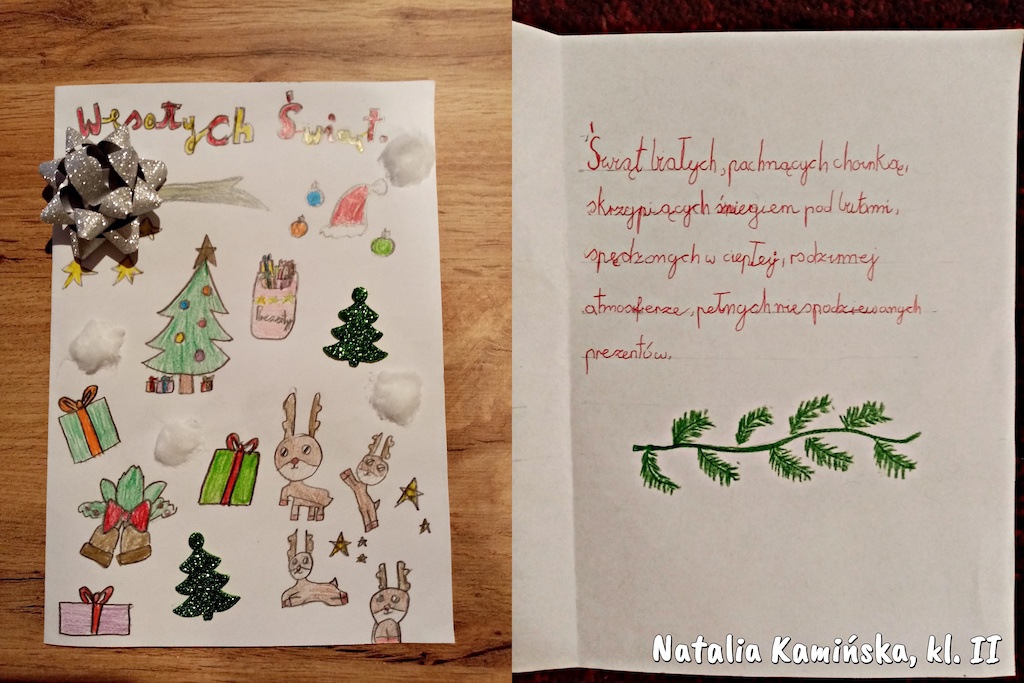 Wesołych Świąt.
Prezenty
Świąt białych, pachnących choinką,
skrzypiących śniegiem pod butami,
spędzonych w ciepłej, rodzinnej
atmosferze, pełnych niespodziewanych
prezentów.
Natalia Kamińska, kl. II